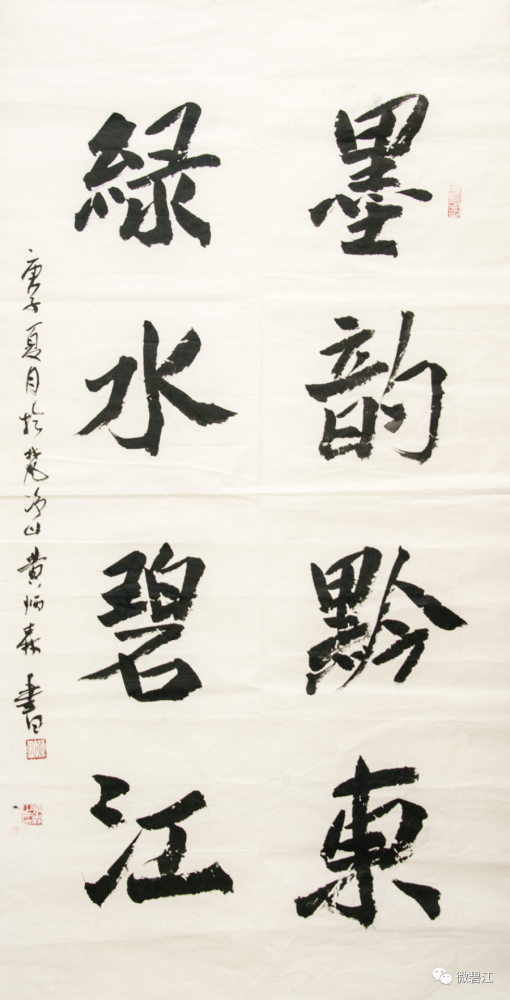 墨韵黔東
緑水碧江
庚子夏月於梵净山黄炳森書
微碧江